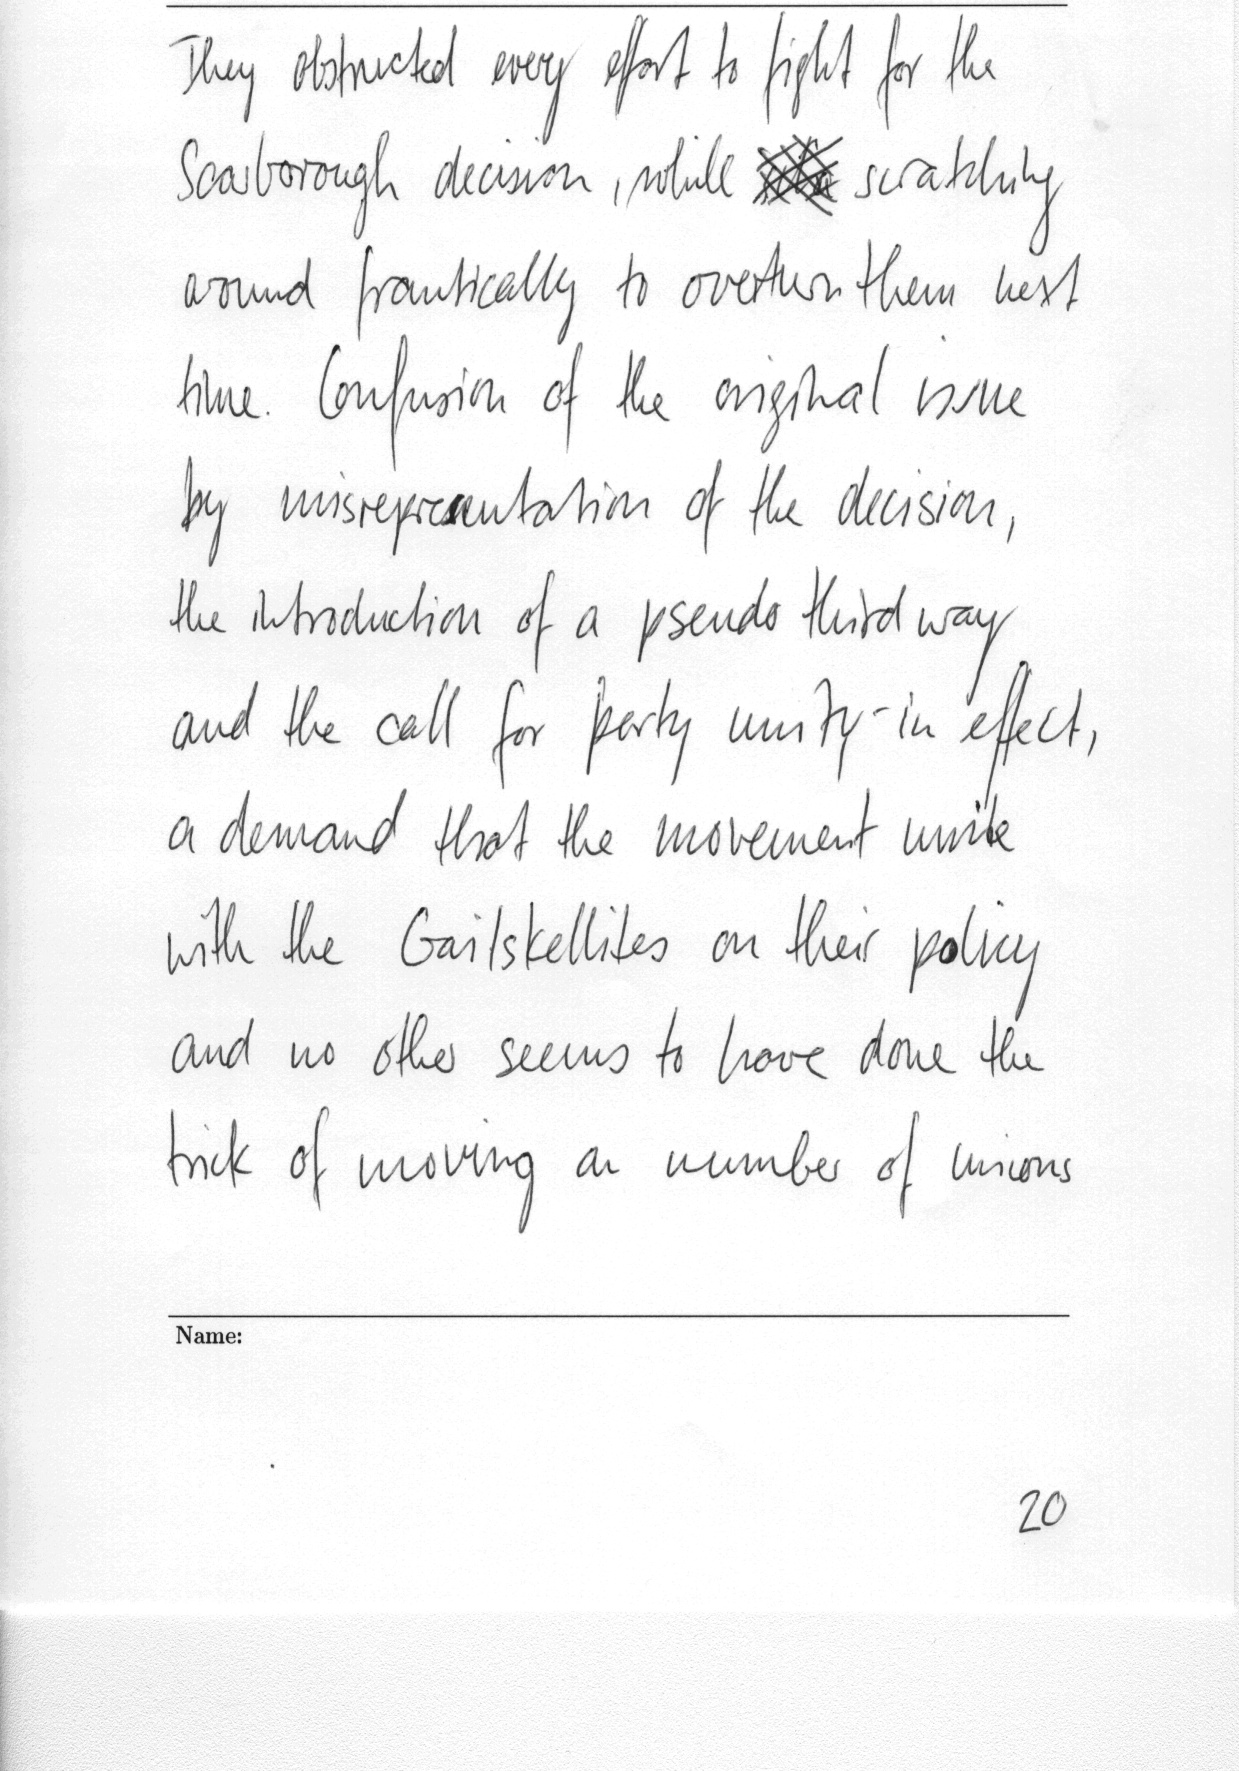 They obstructed every effort to fight for the
Scarborough decision, while scratching
around frantically to overturn them next
time. Confusion of the original issue
by misrepresentation of the decision,
the introduction of a pseudo third way
and the call for party unity - in effect,
a demand that the movement unite
with the Gaitskellites on their policy
and no other seems to have done the
trick of moving a number of unions
Name:
20